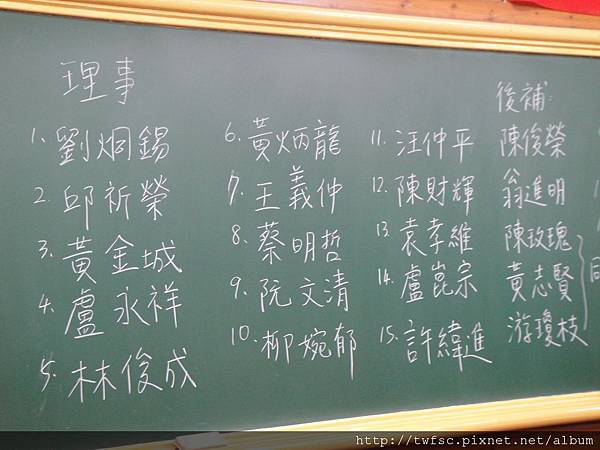 理事
1. 劉炯錫
2. 邱祈榮
3. 黃金城
4. 盧永祥
5. 林俊成
6. 黃炳龍
7. 王義仲
8. 蔡明哲
9. 阮文清
10. 柳婉郁
11. 汪仲平
12. 陳財輝
13. 袁孝維
14. 盧崑宗
15. 許緯進
後補:
陳俊榮
翁進明
陳玫瑰
黃志賢
游瓊枝
http://twfsc.pixnet.net/album